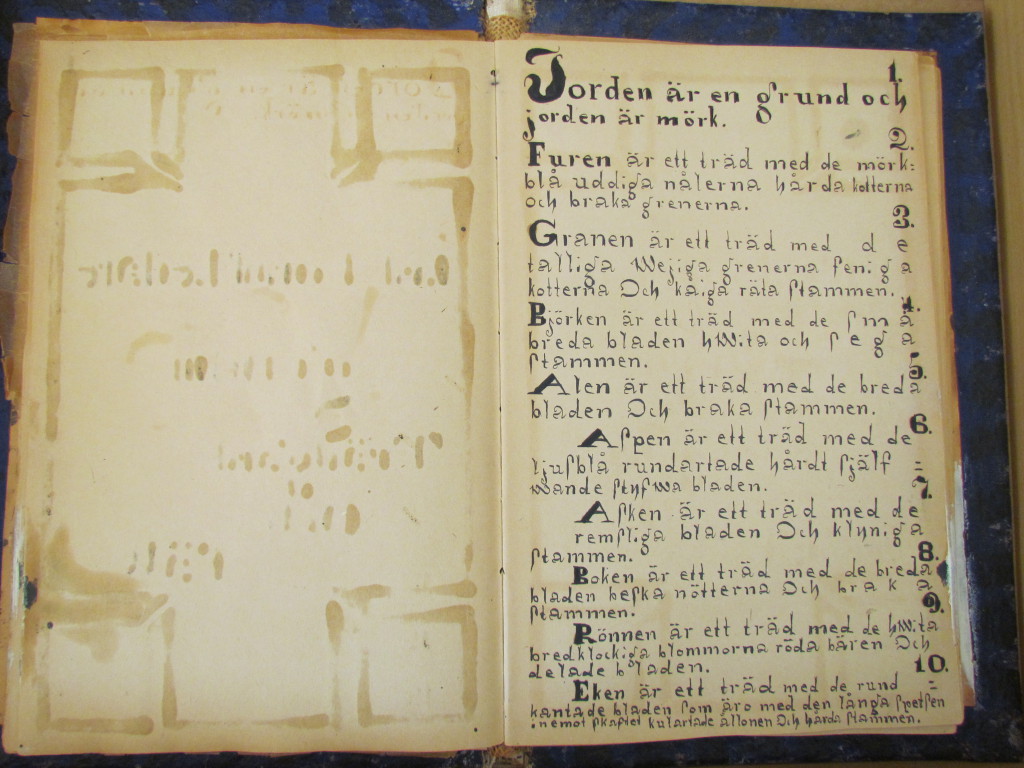 1.
Jorden är en grund och
jorden är mörk.
2.
Furen är ett träd med de mörk=
blå uddiga nålerna hårda kotterna
och braka grenerna.
3.
Granen är ett träd med de
talliga wejiga grenerna feniga
kotterna Och kåiga räta ſtammen.
4.
Björken är ett träd med de ſmå
breda bladen hwita och ſega
ſtammen.
5.
Alen är ett träd med de breda
bladen Och braka ſtammen.
6.
Aſpen är ett träd med de
ljuſblå rundartade hårdt ſjälf=
wande ſtyfwa bladen.
7.
Aſken är ett träd med de
remſliga bladen Och klyniga
ſtammen.
8.
Boken är ett träd med de breda
bladen beſka nötterna Och braka
ſtammen.
9.
Rönnen är ett träd med de hwita
bredklockiga blommorna röda bären Och
delade bladen.
10.
Eken är ett träd med de rund=
kantade bladen ſom äro med den långa ſpetſen
inemot ſkaftet kulartade ållonen Och hårda ſtammen.